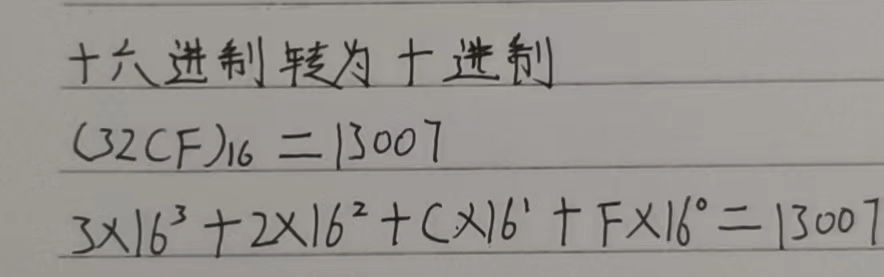 十六进制转为十进制
(32CF)₁₆ = 13007
3×16³ + 2×16² + C×16¹ + F×16⁰ = 13007